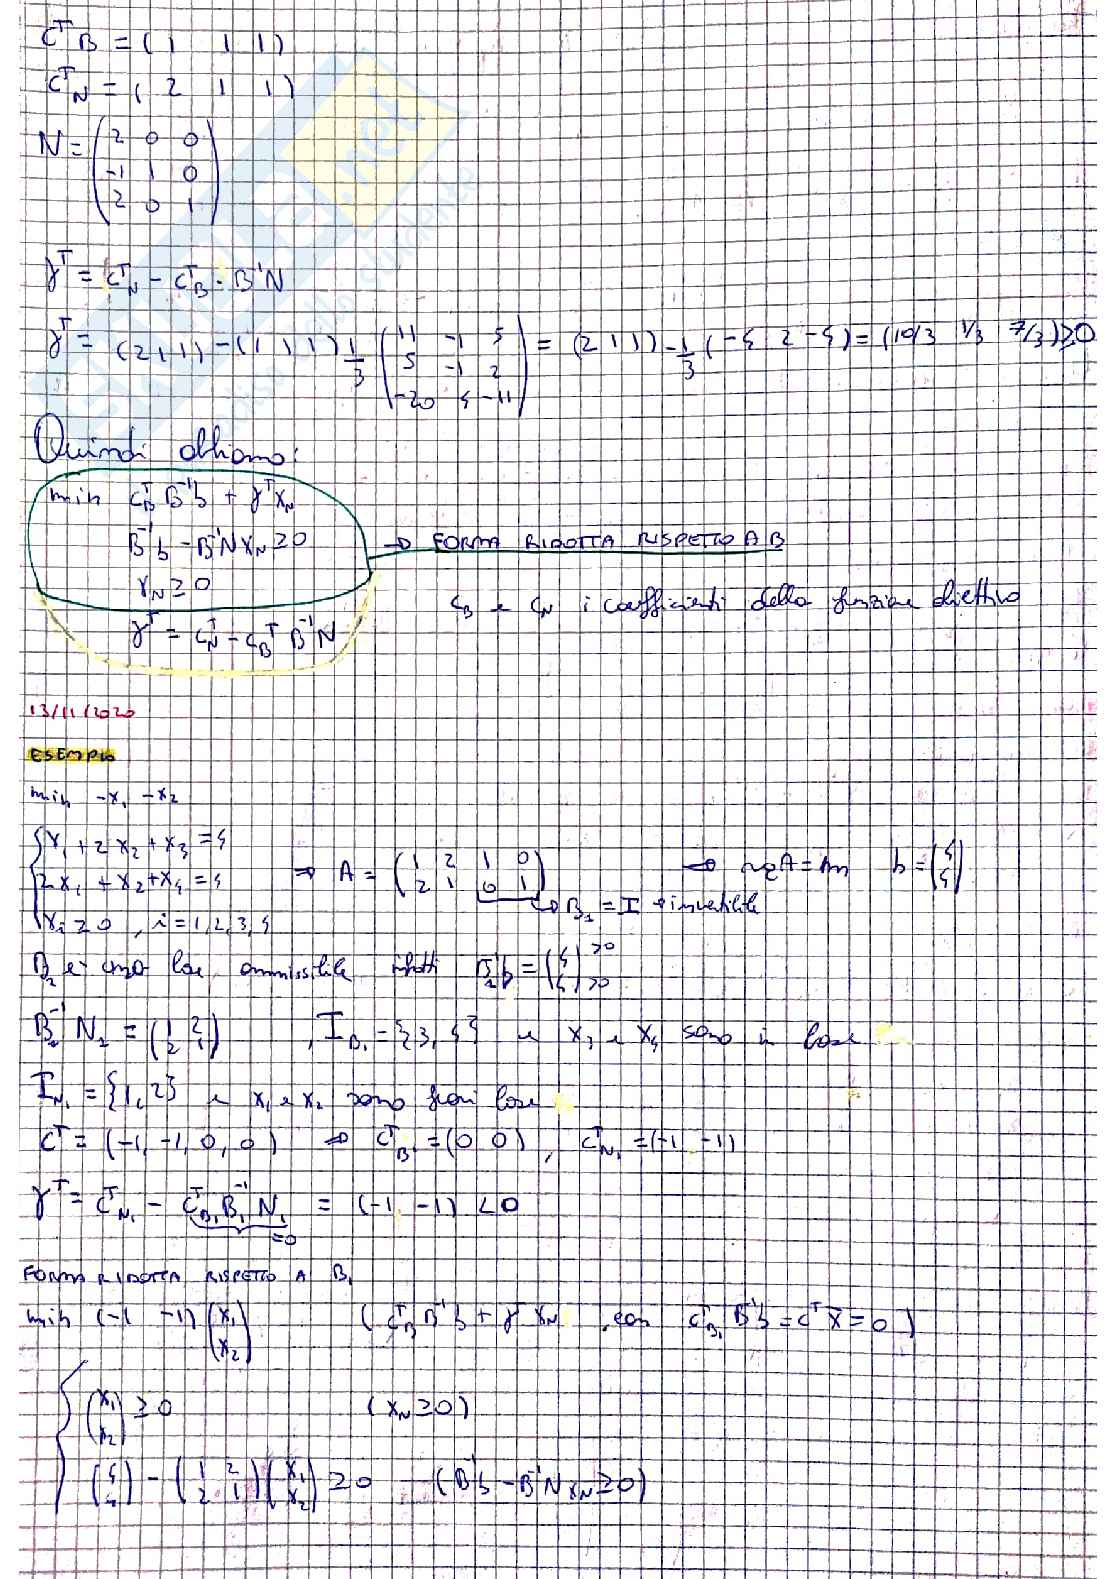 C^T_B = ( 1 1 1 )
C^T_N = ( 2 1 1 )
N = ( 2 0 0
-1 1 0
2 0 1 )
γ^T = C^T_N - C^T_B · B^-1 N
γ^T = (2 1 1) - (1 1 1) 1/3 ( 11 -1 5
5 -1 2
-20 4 -11 ) = (2 1 1) - 1/3 (-4 2 -4) = (10/3 1/3 7/3) ≥ 0
Quindi abbiamo:
min C^T_B B^-1 b + γ^T x_N
B^-1 b - B^-1 N x_N ≥ 0 → FORMA RIDOTTA RISPETTO A B
x_N ≥ 0
C_B e C_N i coefficienti della funzione obiettivo
γ^T = C^T_N - C_B^T B^-1 N
13/11/2020
ESEMPIO
min -x_1 - x_2
{ x_1 + 2x_2 + x_3 = 4
2x_1 + x_2 + x_4 = 4 ⇒ A = ( 1 2 1 0
2 1 0 1 ) → rg A = m b = ( 4
4 )
x_i ≥ 0 , i = 1, 2, 3, 4 → B_1 = I → invertibile
B_1 è una base ammissibile infatti B_1^-1 b = ( 4 >0
4 >0 )
B_1^-1 N_1 = ( 1 2
2 1 ) , I_B1 = {3, 4} e x_3 e x_4 sono in base
I_N1 = {1, 2} e x_1 e x_2 sono fuori base
C^T = (-1, -1, 0, 0) ⇒ C^T_B1 = (0 0) , C^T_N1 = (-1 -1)
γ^T = C^T_N1 - C^T_B1 B_1^-1 N_1 = (-1 -1) < 0
=0
FORMA RIDOTTA RISPETTO A B_1
min (-1 -1) ( x_1
x_2 ) ( C^T_B B^-1 b + γ^T x_N , con C^T_B1 B^-1 b = C^T x̄ = 0 )
{ ( x_1
x_2 ) ≥ 0 ( x_N ≥ 0 )
( 4
4 ) - ( 1 2
2 1 ) ( x_1
x_2 ) ≥ 0 ( B^-1 b - B^-1 N x_N ≥ 0 )